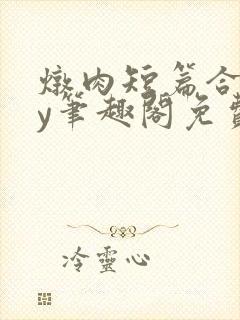 燉肉短篇合
y筆趣閣免費
冷靈心